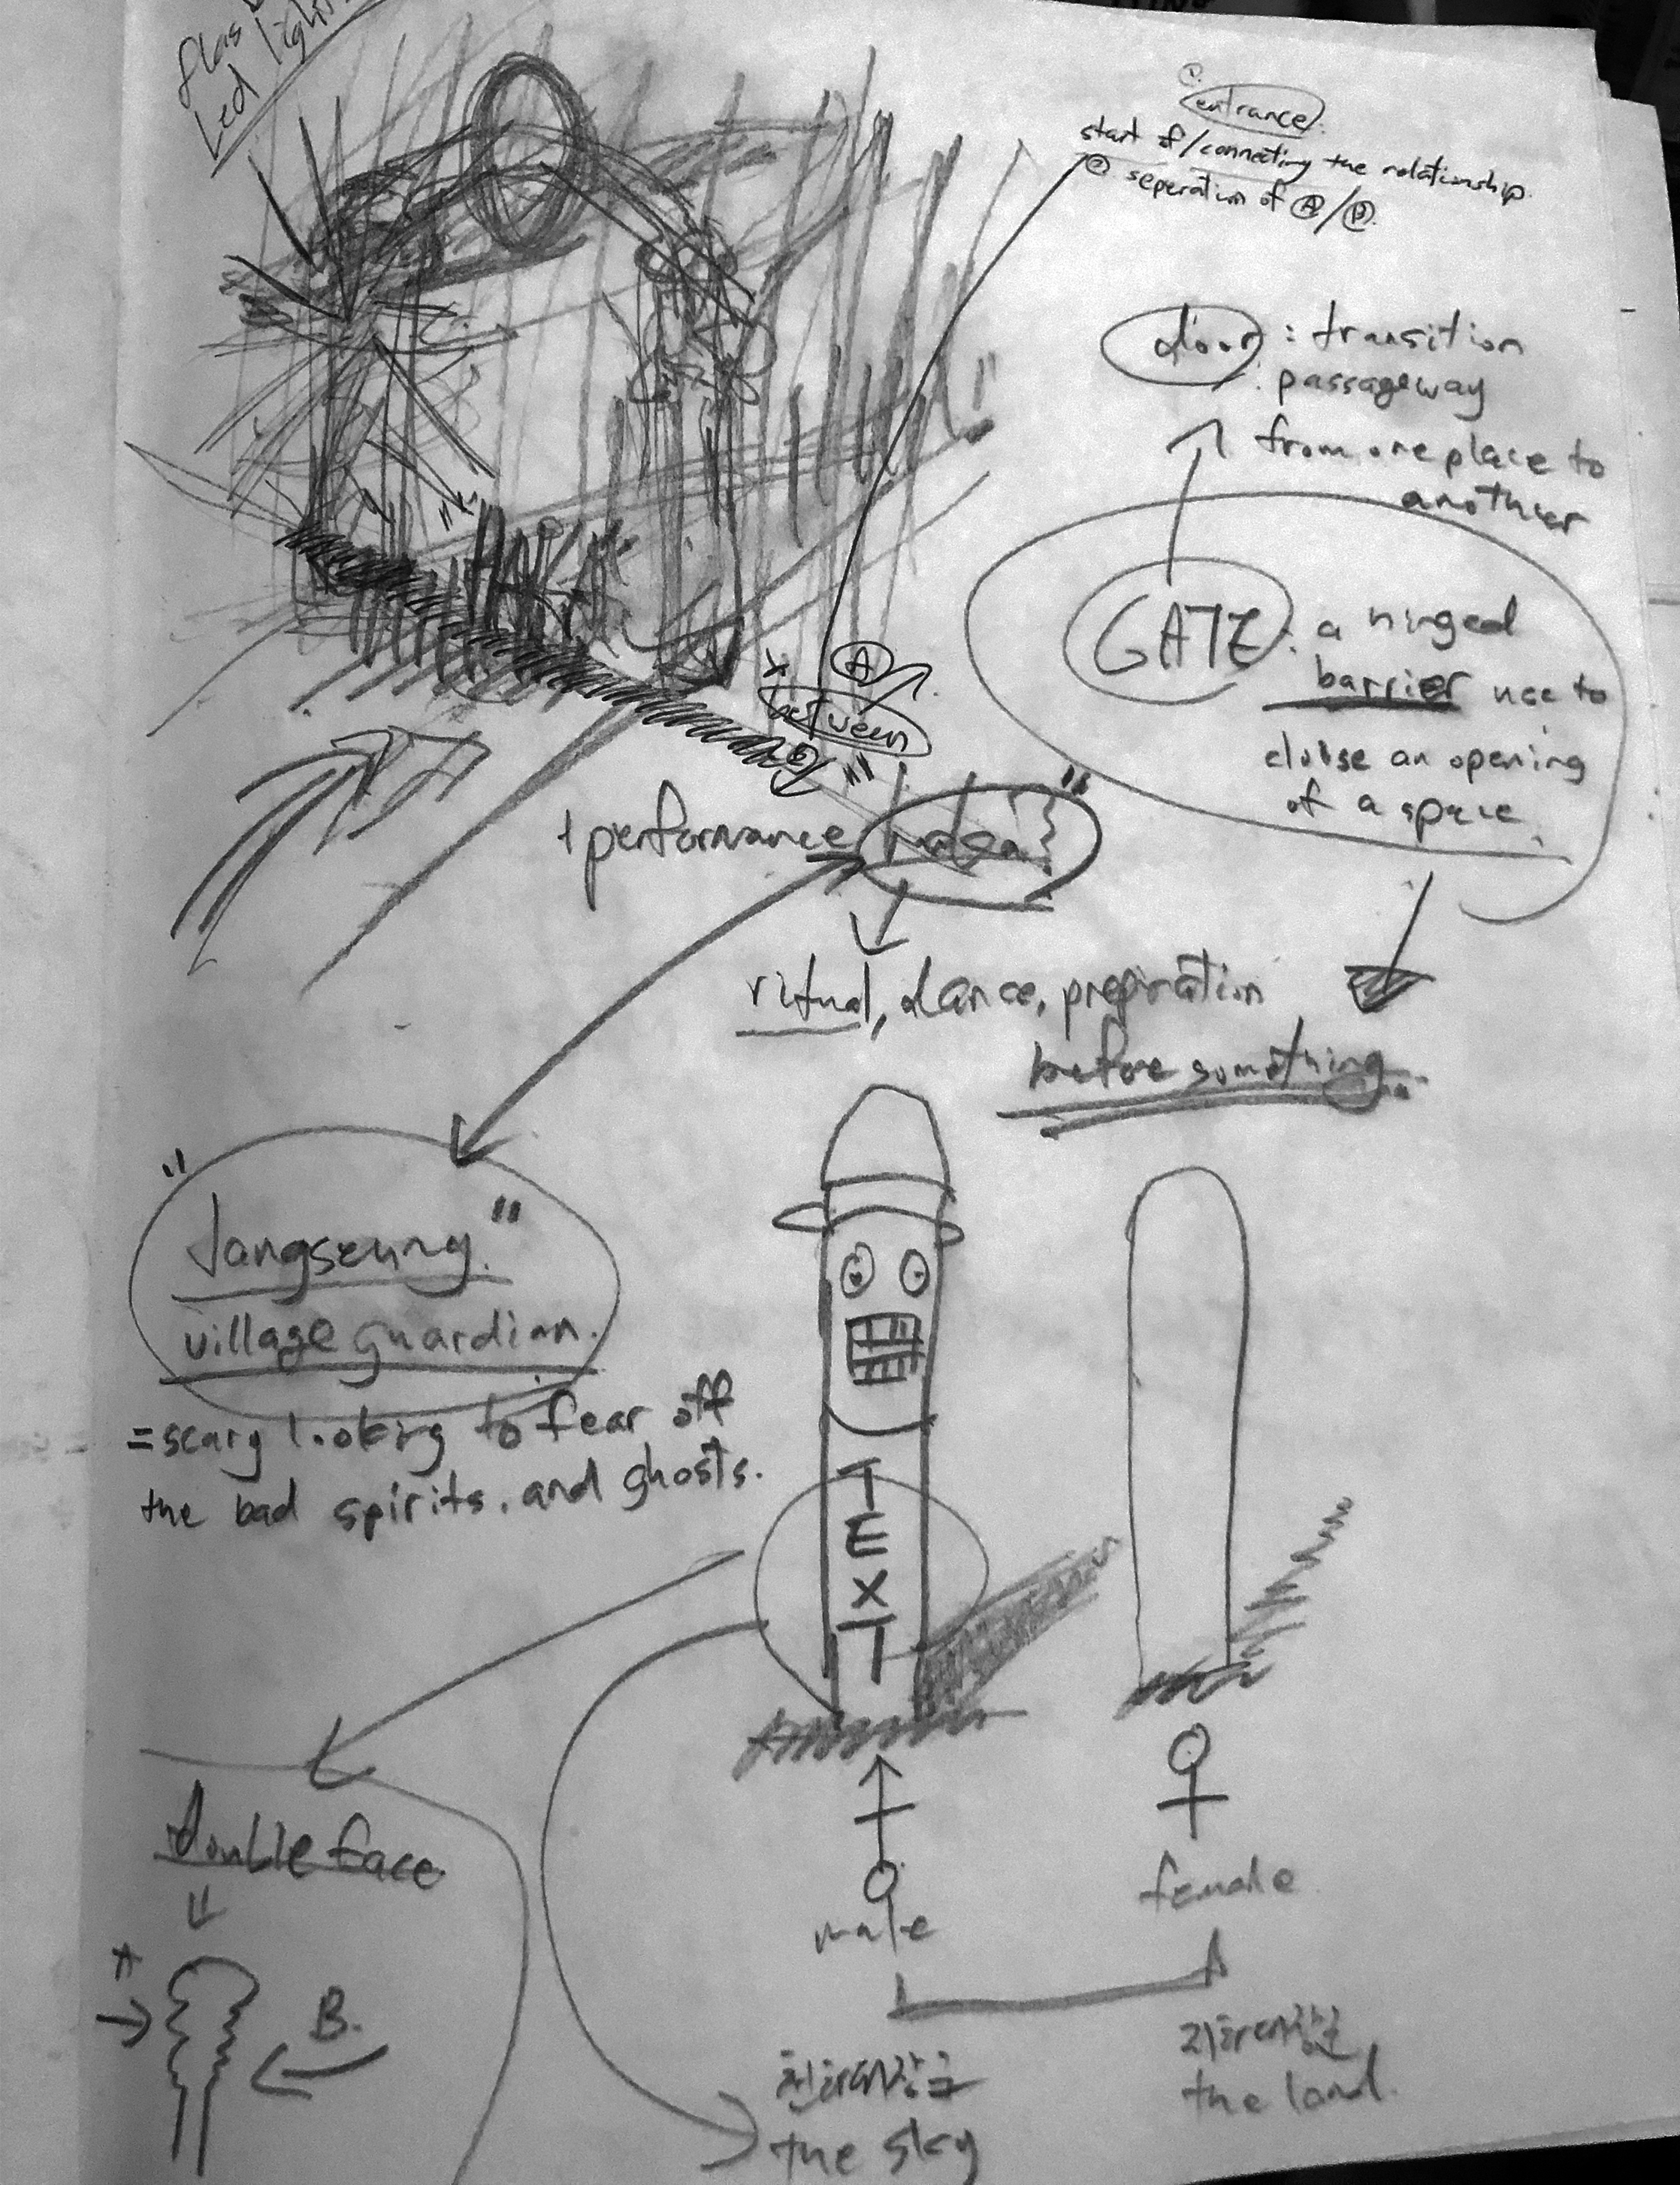 Led light
①
entrance.
start of/connecting the relationship.
② seperation of Ⓐ/Ⓑ.
door : transition
: passageway
from one place to
another
GATE : a hinged
barrier use to
clubse an opening
of a space.
HAKA
"
A
between
B
+ performance
ritual, dance, prepiration
before something...
"Jangseung."
village guardian.
= scary looking to fear off
the bad spirits. and ghosts.
TEXT
double face
A
B.
male
female.
천하대장군
the sky
지하대장군
the land.